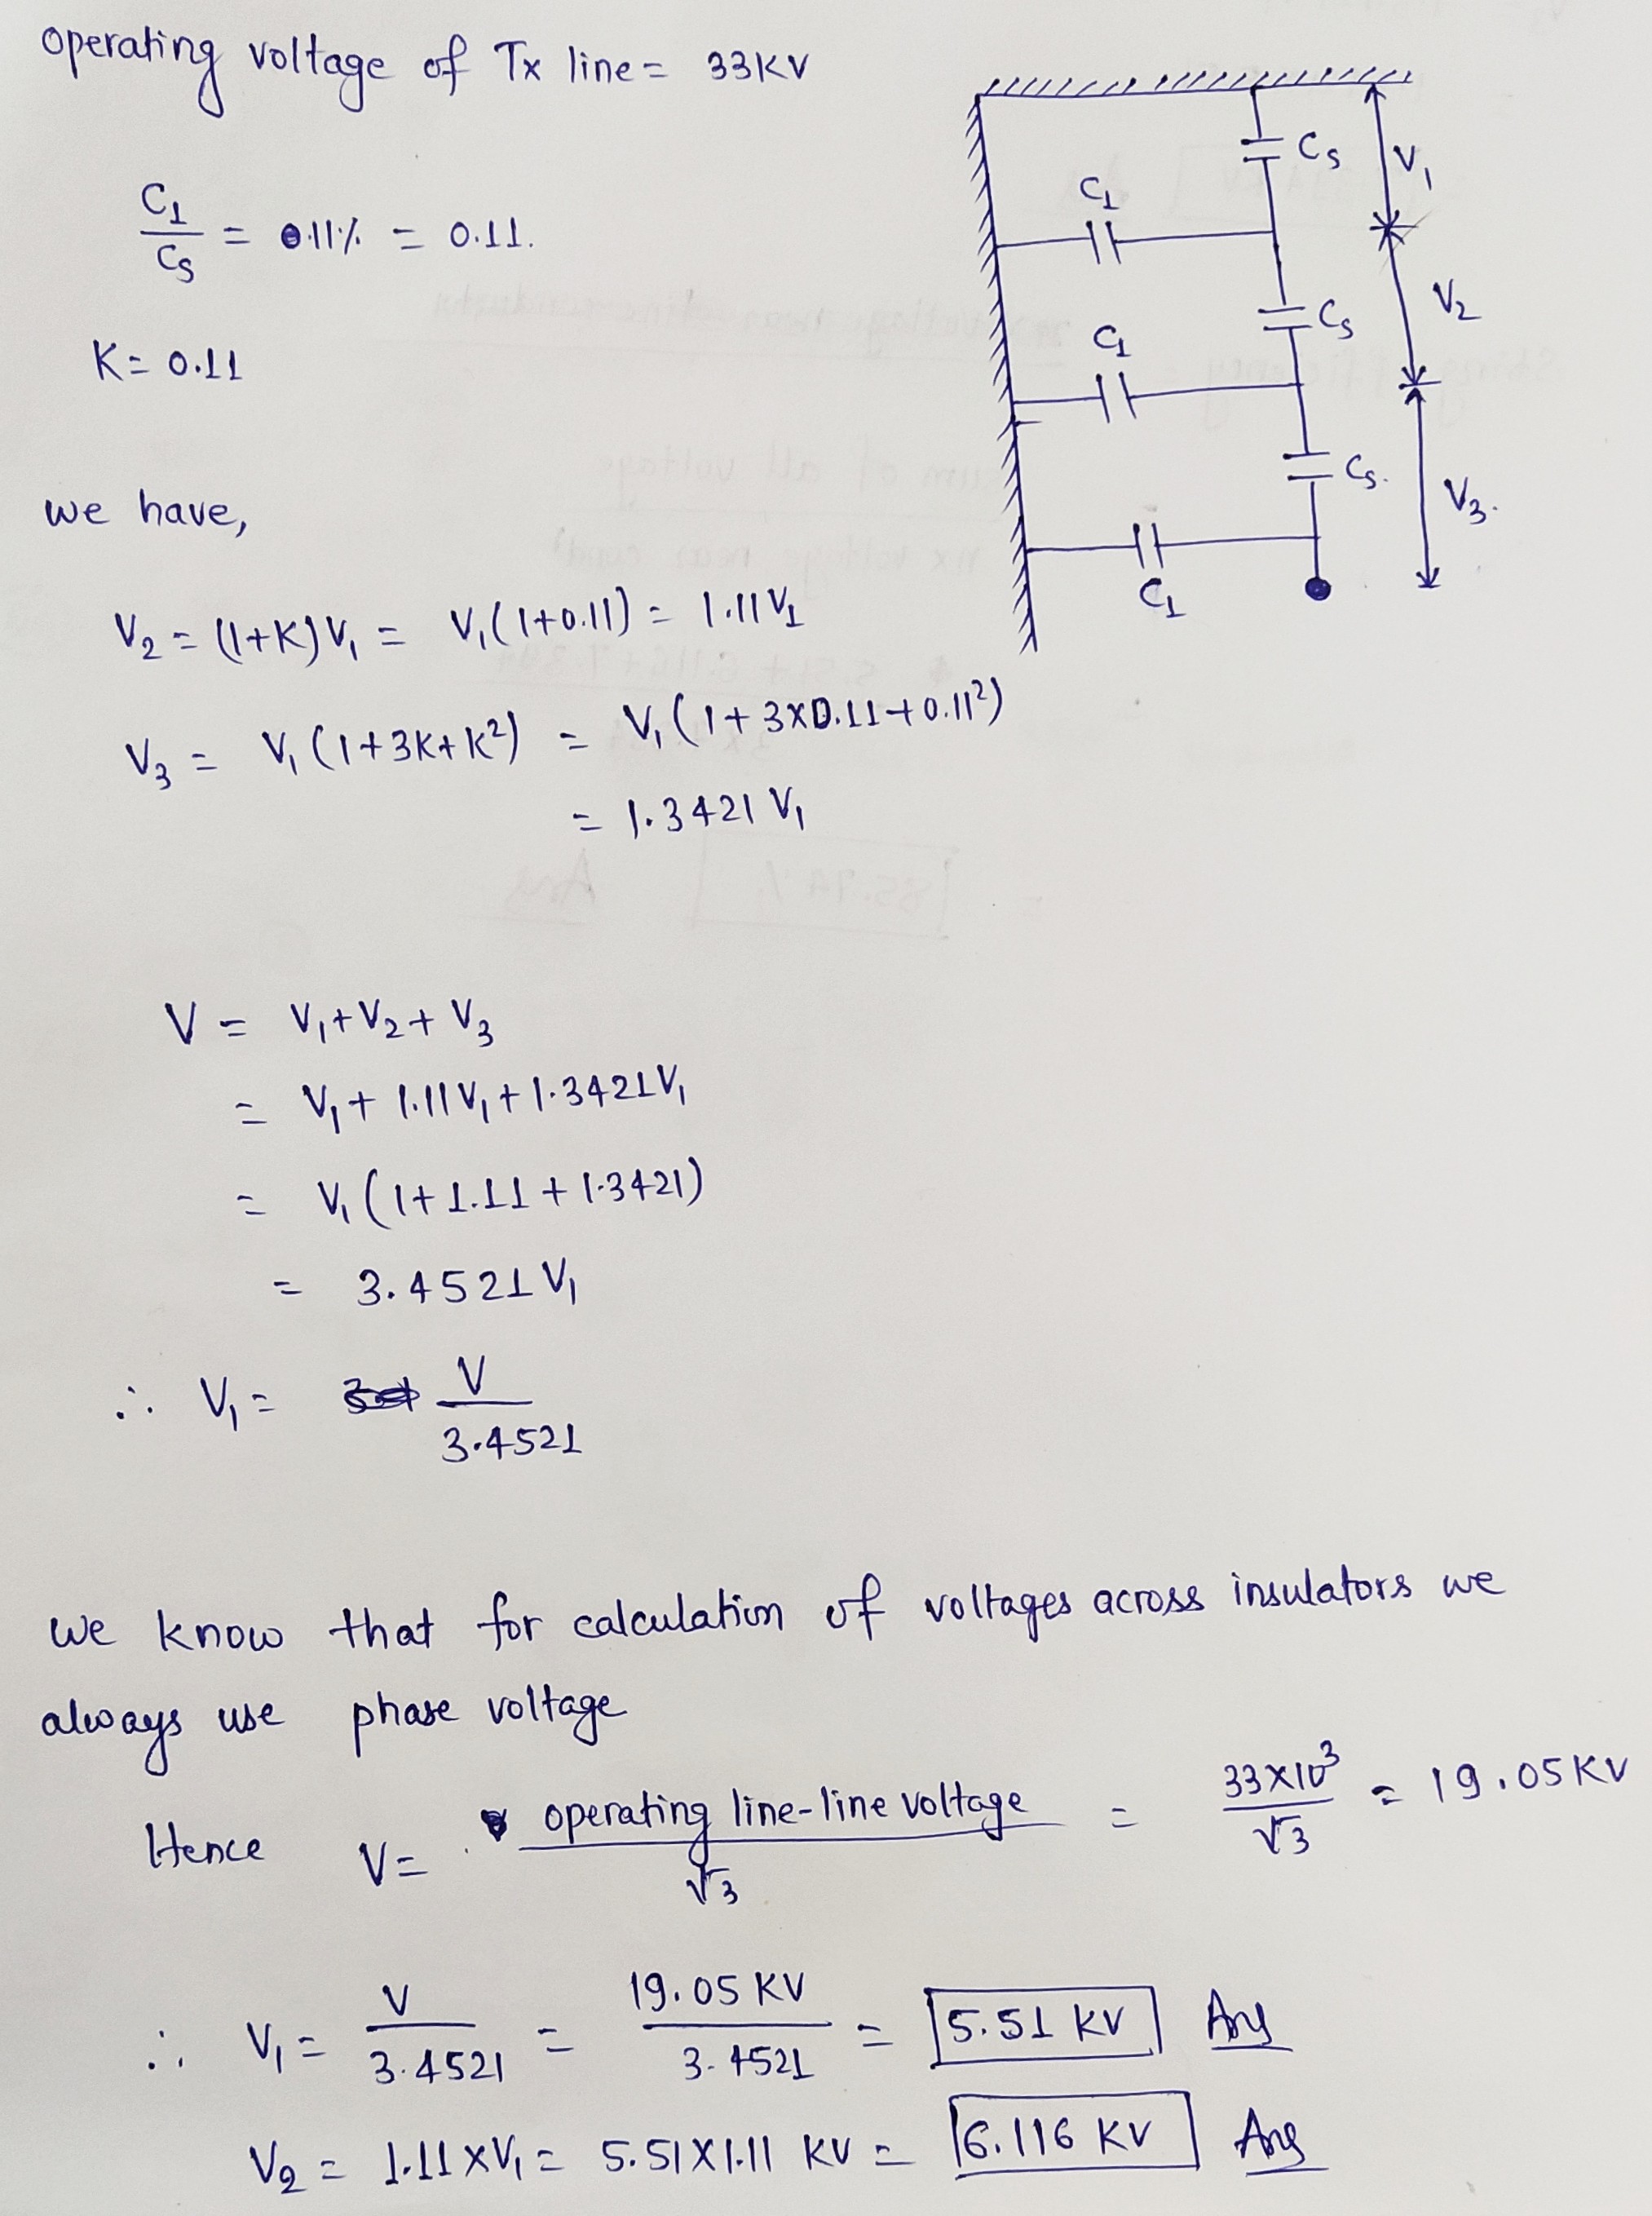 operating voltage of Tx line = 33KV
C1/Cs = 11% = 0.11.
K = 0.11
we have,
V2 = (1+K)V1 = V1(1+0.11) = 1.11V1
V3 = V1(1+3K+K²) = V1(1+3×0.11+0.11²)
= 1.3421 V1
Cs
V1
C1
Cs
V2
C1
Cs.
V3.
C1
V = V1+V2+V3
= V1+1.11V1+1.3421V1
= V1(1+1.11+1.3421)
= 3.4521V1
∴ V1 = V/3.4521
we know that for calculation of voltages across insulators we
always use phase voltage
Hence V = operating line-line voltage/√3 = 33×10³/√3 = 19.05KV
∴ V1 = V/3.4521 = 19.05 KV/3.4521 = 5.51 KV Ans
V2 = 1.11×V1 = 5.51×1.11 KV = 6.116 KV Ans